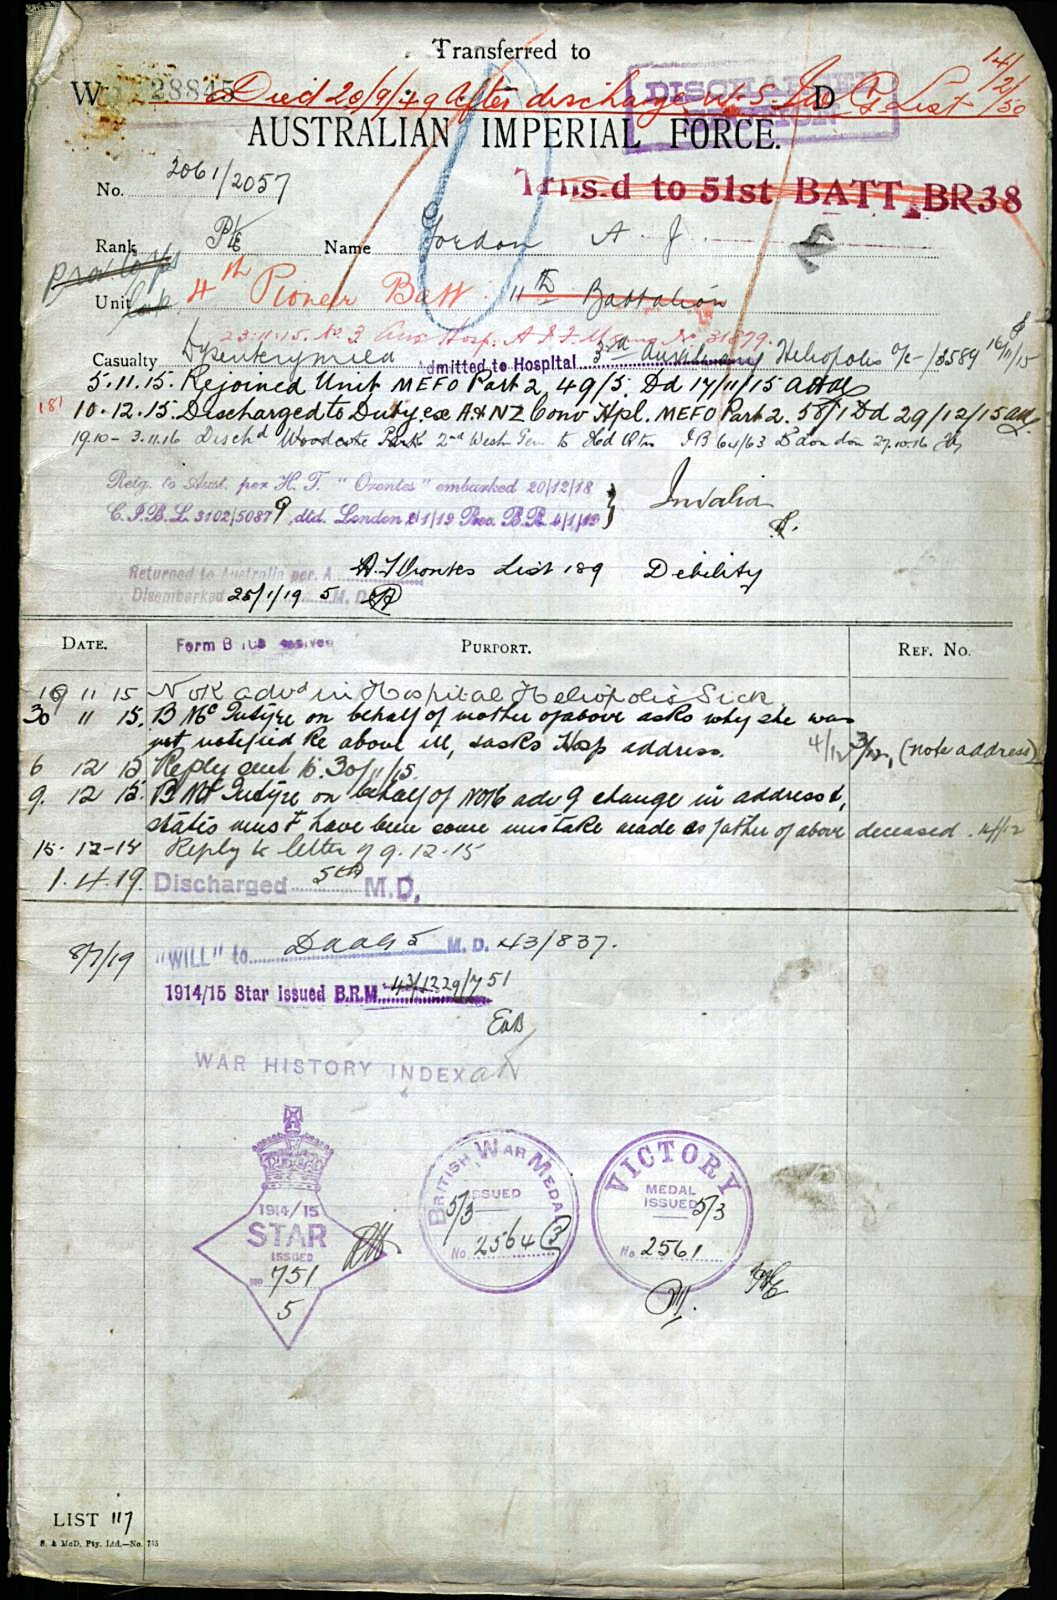 Transferred to
W 28845 D
Died 20/9/49 After discharge List 14/2/50
DISCHARGED
AUSTRALIAN IMPERIAL FORCE.
No. 2061/2057
Trns.d to 51st BATT. BR38
Rank Pte Name Gordon A. J.
Unit 4th Pioneer Batt. 11th Battalion
23.11.15. No. 3 Aus Hosp. No. 31879.
Casualty Dysentery mild Admitted to Hospital 3rd Heliopolis O/c-13589 16/11/15
5.11.15. Rejoined Unit MEFO Part 2. 49/5. Dd 17/11/15
181 10.12.15. Discharged to Duty ex A & NZ Conv Hpl. MEFO Part 2. 58/1 Dd 29/12/15
19.10 - 3.11.16 Disch'd Woodcote Park 2nd West Gen to 27.10.16
Retg. to Aust. per H. T. "Orontes" embarked 20/12/18 } Invalid
C.I.B.L. 3102/50879, dtd. London 2/1/19 Rec. B.R. 4/1/19
Returned to Australia per. A Orontes List 189 Debility
Disembarked 25/1/19 5 M. D.
DATE. Form B 103 received PURPORT. REF. No.
19 11 15 NOK advd in Hospital Heliopolis Sick
30 11 15. B McIntyre on behalf of mother of above asks why she was
not notified re above ill, & asks Hosp address. 4/12 3/12, (note address)
6 12 15 Reply sent to 30/11/15.
9. 12 15. B McIntyre on behalf of NOK adv of change in address &,
states must have been some mistake made as father of above deceased.
15-12-15 Reply to letter of 9.12.15
1.4.19. Discharged 5th M.D.
8/7/19 "WILL" to 5 M. D. 43/837.
1914/15 Star Issued B.R.M. 43/1229/751
WAR HISTORY INDEX
1914/15
STAR
ISSUED
No 751
5
BRITISH WAR MEDAL
ISSUED
5/3
No 2564
VICTORY
MEDAL
ISSUED 5/3
No 2561
LIST 117
S. & McD. Pty. Ltd.—No. 715